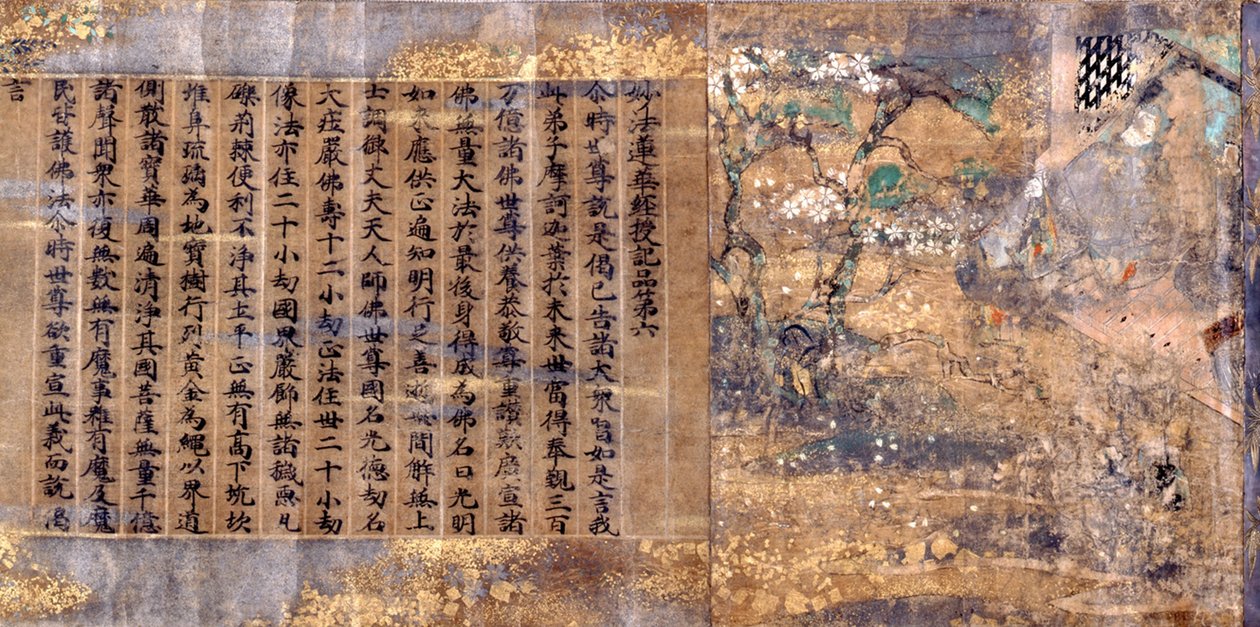 妙法蓮華經授記品第六
尒時世尊說是偈已告諸大衆唱如是言我
此弟子摩訶迦葉於未来世當得奉覲三百
万億諸佛世尊供養恭敬尊重讚歎廣宣諸
佛無量大法於最後身得成為佛名曰光明
如来應供正遍知明行足善逝世間解無上
士調御丈夫天人師佛世尊國名光德劫名
大莊嚴佛壽十二小劫正法住世二十小劫
像法亦住二十小劫國界嚴飾無諸穢惡瓦
礫荊棘便利不淨其土平正無有高下坑坎
堆阜琉璃為地寶樹行列黃金為繩以界道
側散諸寶華周遍清淨其國菩薩無量千億
諸聲聞衆亦復無數無有魔事雖有魔及魔
民皆護佛法尒時世尊欲重宣此義而說偈
言